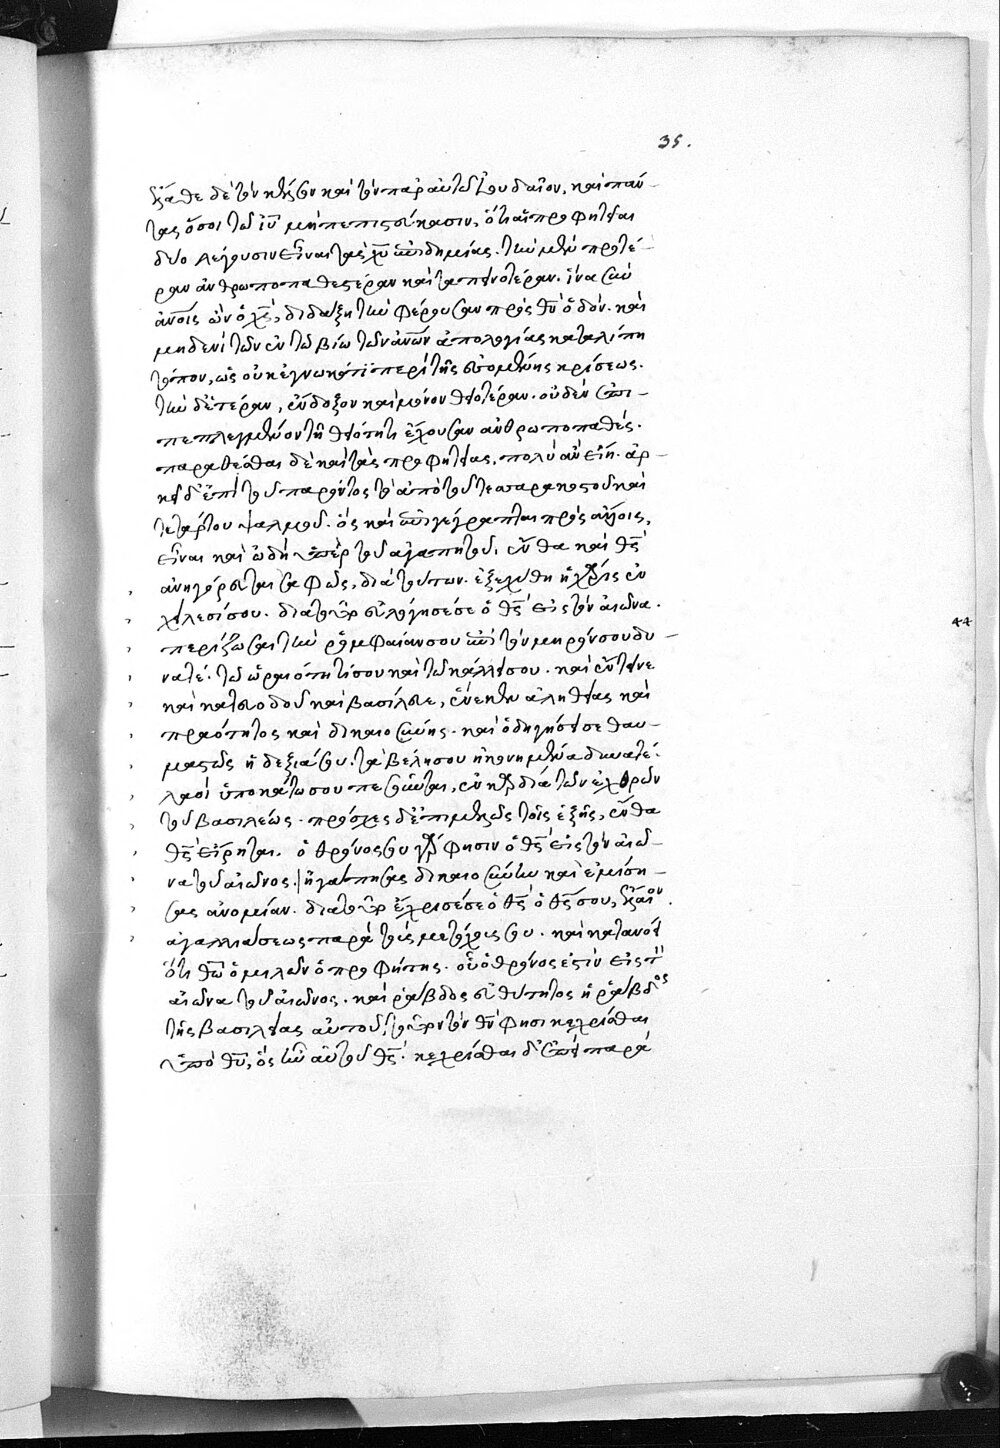 ἔλαθε δὲ τὸν κέλσον καὶ τὸν παρ' αὐτῷ Ἰουδαῖον, καὶ πάν-
τας ὅσοι τῷ ἰῦ μὴ πεπιστεύκασιν, ὅτι αἱ προφητεῖαι
δύο λέγουσιν εἶναι τὰς χῦ ἐπιδημίας. τὴν μὲν προτέ-
ραν ἀνθρωποπαθεστέραν καὶ ταπεινοτέραν. ἵνα σὺν
ἀνοις ὢν ὁ χς, διδάξῃ τὴν φέρουσαν πρὸς θν ὁδόν. καὶ
μηδενὶ τῶν ἐν τῷ βίῳ τῶν ἀνων ἀπολογίας καταλίπῃ
τόπον, ὡς οὐκ ἐγνωκότι περὶ τῆς ἐσομένης κρίσεως.
τὴν δ' ἑτέραν, ἔνδοξον καὶ μόνον θειοτέραν. οὐδὲν ἐπι-
πεπλεγμένον τῇ θειότητι ἔχουσαν ἀνθρωποπαθές.
παραθέσθαι δὲ καὶ τὰς προφητείας, πολὺ ἂν εἴη. ἀρ-
κεῖ δ' ἐπὶ τοῦ παρόντος τὸ ἀπὸ τοῦ τεσσαρακοστοῦ καὶ
τετάρτου ψαλμοῦ. ὃς καὶ ἐπιγέγραπται πρὸς ἄλλοις,
εἶναι καὶ ὠδὴ ὑπὲρ τοῦ ἀγαπητοῦ, ἔνθα καὶ θς
ἀνηγόρευται σαφῶς, διὰ τούτων. ἐξεχύθη ἡ χάρις ἐν
χείλεσί σου. διὰ τοῦτο εὐλόγησέ σε ὁ θς εἰς τὸν αἰῶνα.
περίζωσαι τὴν ῥομφαίαν σου ἐπὶ τὸν μηρόν σου δυ-
νατέ. τῷ ὡραιότητί σου καὶ τῷ κάλλει σου. καὶ ἔντεινε
καὶ κατευοδοῦ καὶ βασίλευε, ἕνεκεν ἀληθείας καὶ
πραότητος καὶ δικαιοσύνης. καὶ ὁδηγήσει σε θαυ-
μαστῶς ἡ δεξιά σου. τὰ βέλη σου ἠκονημένα δυνατέ.
λαοὶ ὑποκάτω σου πεσοῦνται, ἐν καρδίᾳ τῶν ἐχθρῶν
τοῦ βασιλέως. πρόσχες δ' ἐπιμελῶς τοῖς ἑξῆς, ἔνθα
θς εἴρηται. ὁ θρόνος σου γάρ φησιν ὁ θς εἰς τὸν αἰῶ-
να τοῦ αἰῶνος. ἠγάπησας δικαιοσύνην καὶ ἐμίση-
σας ἀνομίαν. διὰ τοῦτο ἔχρισέ σε ὁ θς ὁ θς σου, ἔλαιον
ἀγαλλιάσεως παρὰ τοὺς μετόχους σου. καὶ κατανόει
ὅτι θῶ ὁμιλῶν ὁ προφήτης. οὗ ὁ θρόνος ἐστὶν εἰς τὸν
αἰῶνα τοῦ αἰῶνος. καὶ ῥάβδος εὐθύτητος ἡ ῥάβδος
τῆς βασιλείας αὐτοῦ, τοῦτον τὸν θν φησι κεχρῖσθαι
ὑπὸ θῦ, ὃς ἦν αὐτοῦ θς. κεχρῖσθαι δ' ἐπεὶ παρὰ